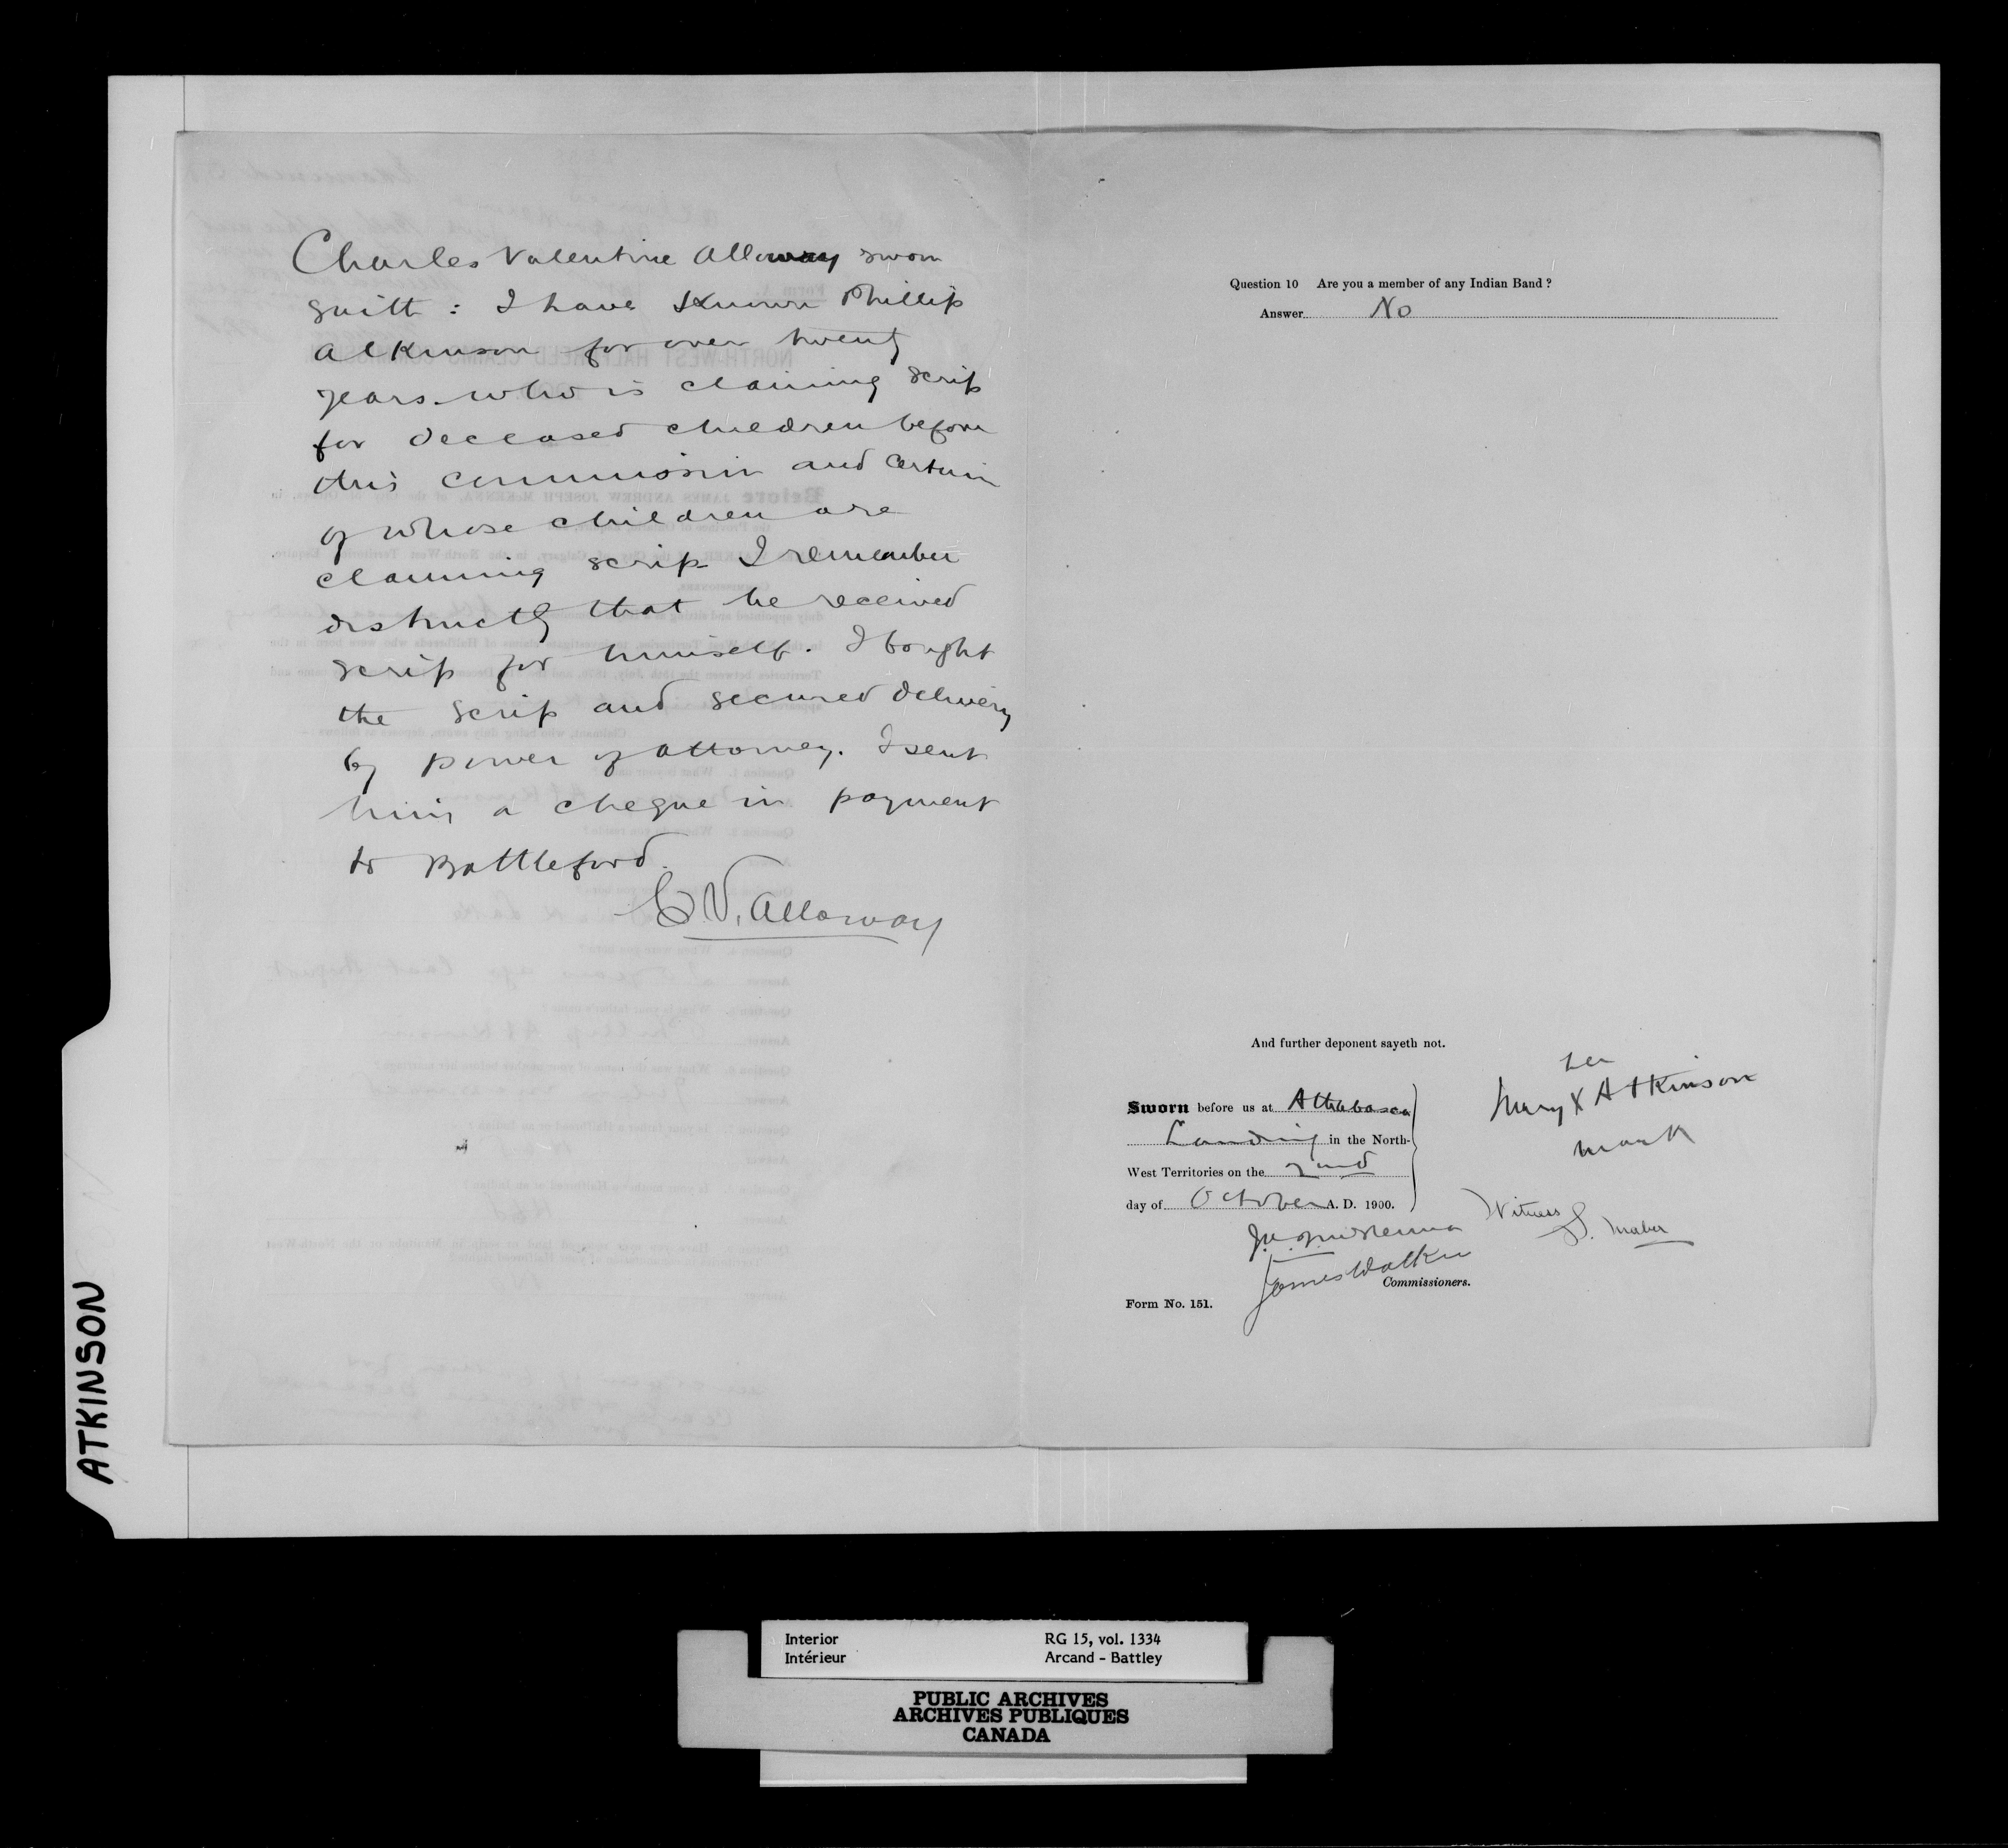 Charles Valentine Alloway sworn
saith : I have Known Phillip
Atkinson for over twenty
years who is claiming scrip
for deceased children before
this commission and certain
of whose children are
claiming scrip I remember
distinctly that he received
scrip for himself. I bought
the scrip and secured delivery
by power of attorney. I sent
him a cheque in payment
to Battleford.
C.V. Alloway
Question 10 Are you a member of any Indian Band ?
Answer No
And further deponent sayeth not.
her
Mary X Atkinson
mark
Sworn before us at Athabasca
Landing in the North-
West Territories on the 2nd
day of October A. D. 1900.
Witness
James Walker
Commissioners.
Form No. 151.
ATKINSON
Interior RG 15, vol. 1334
Intérieur Arcand - Battley
PUBLIC ARCHIVES
ARCHIVES PUBLIQUES
CANADA